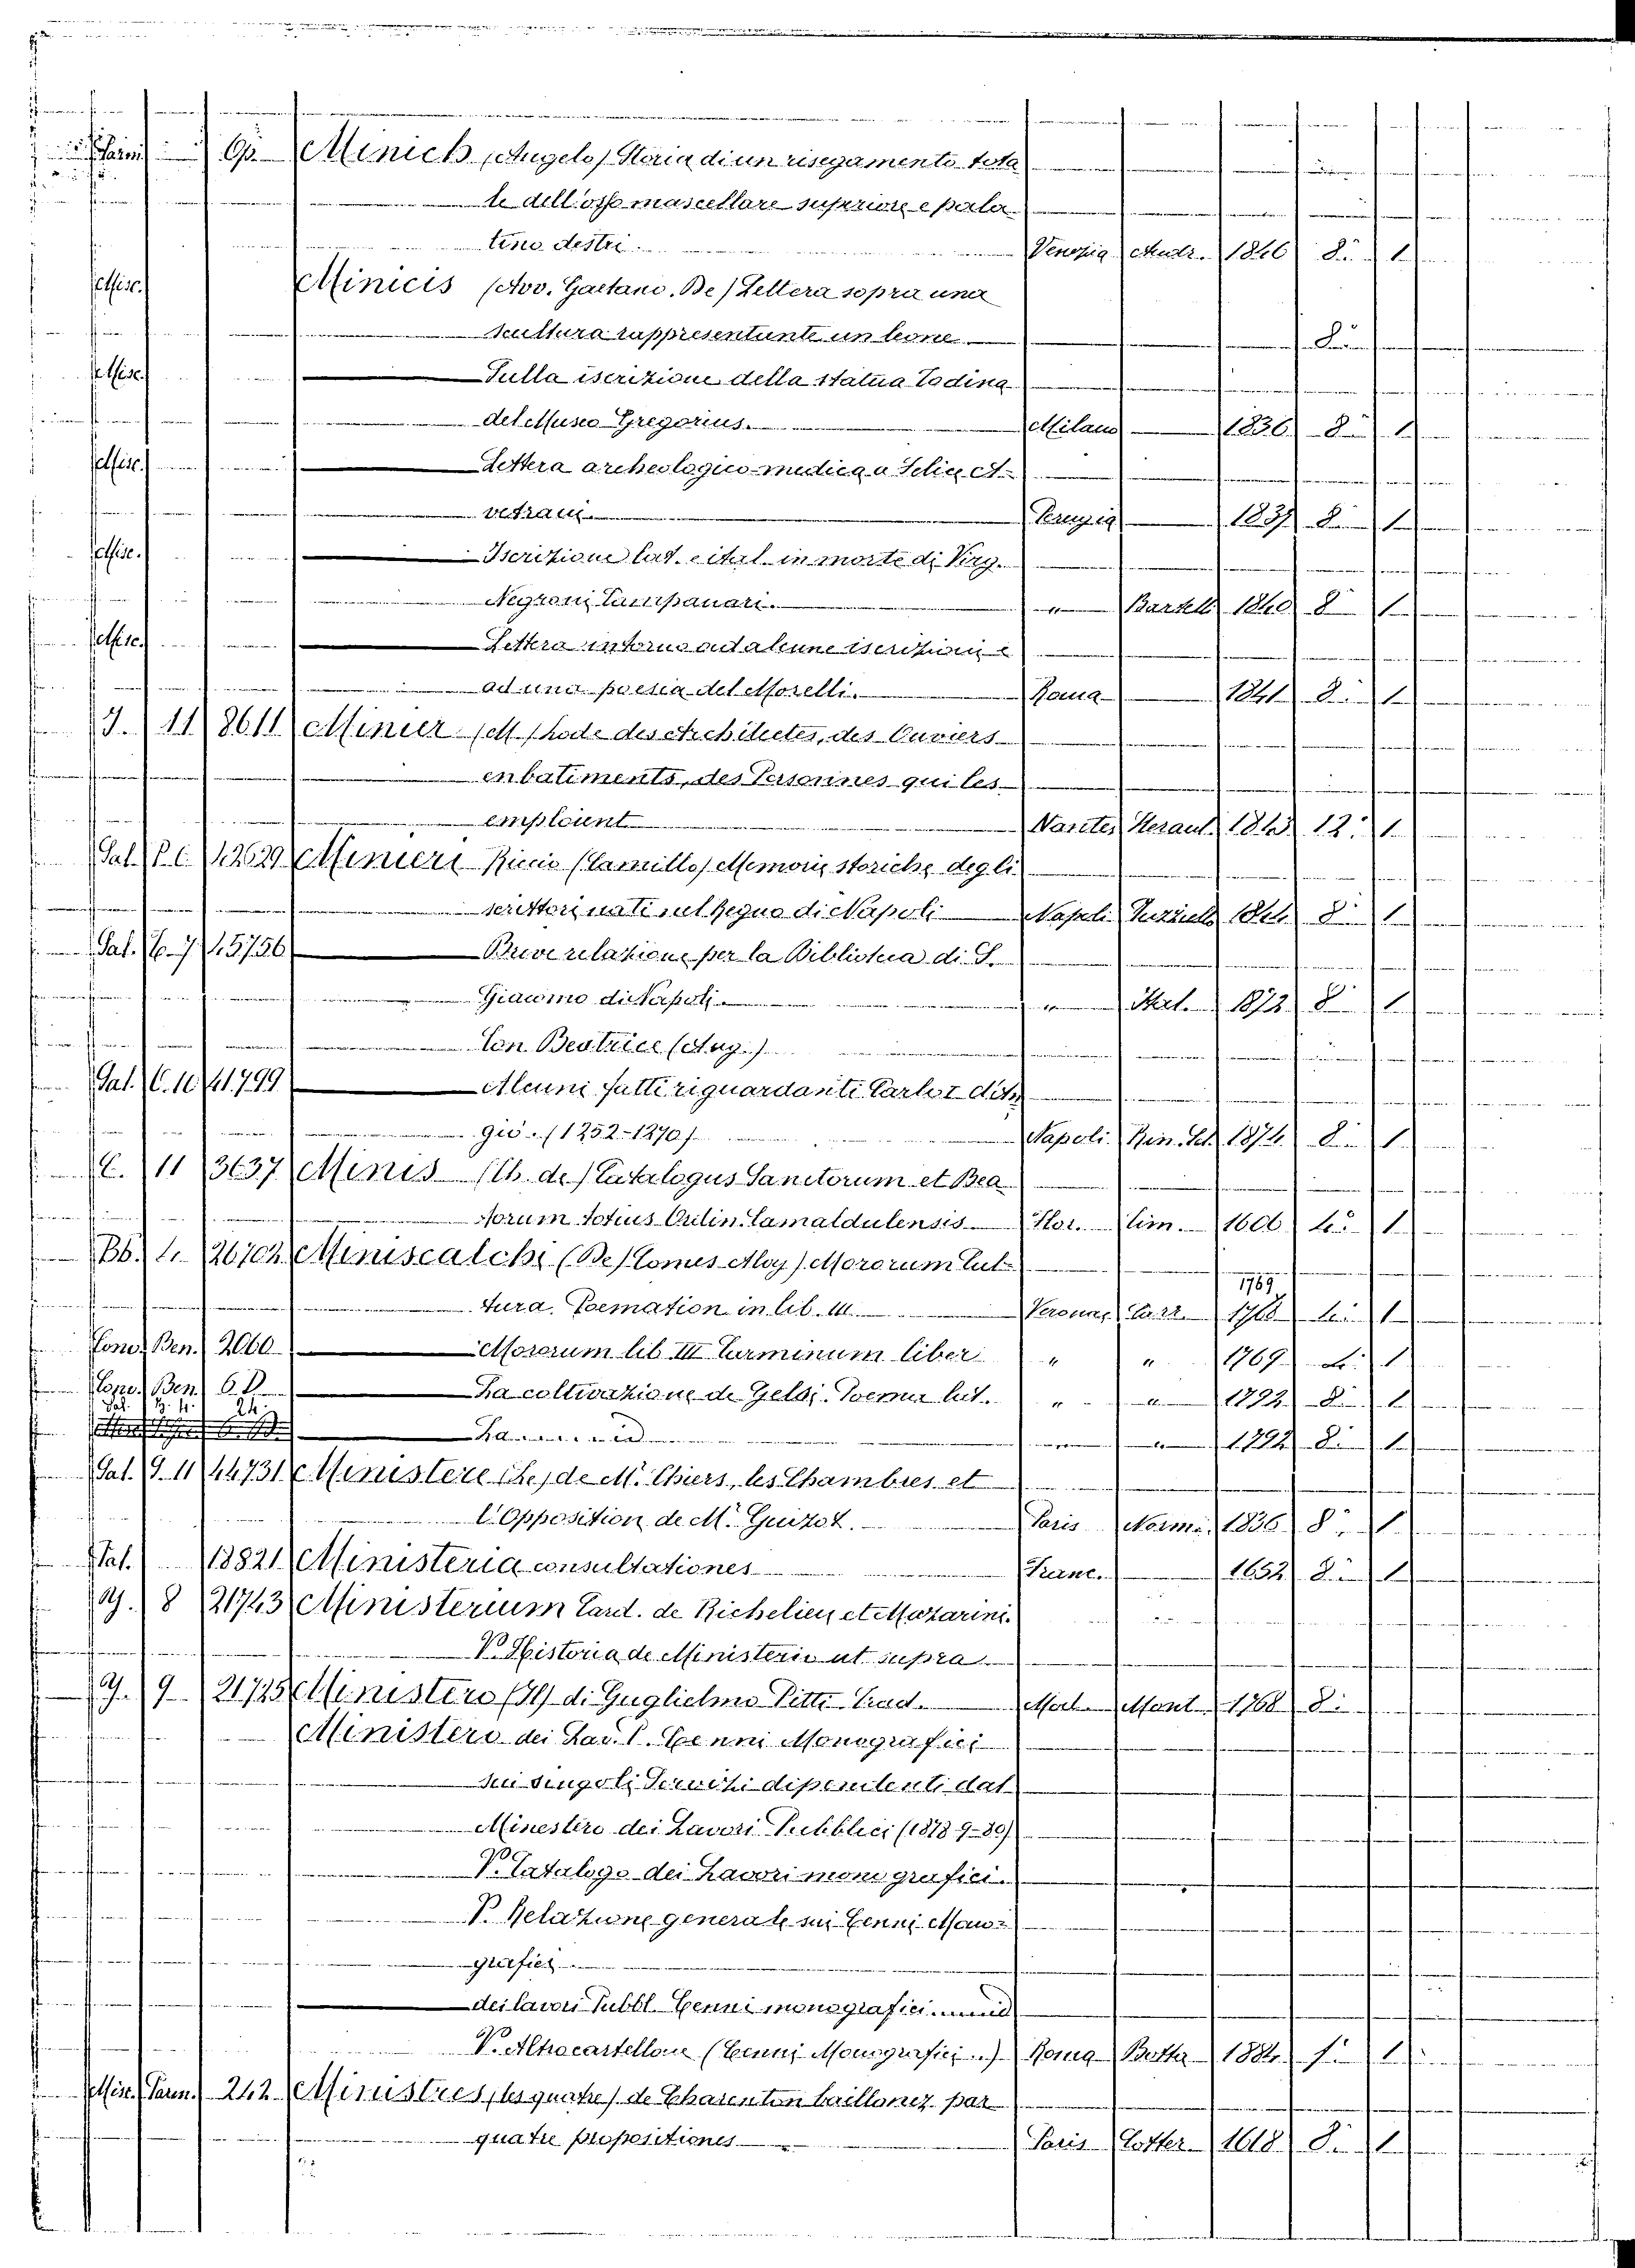 Op. Minich (Angelo) Storia di un risegamento tota
le dell'osso mascellare superiore e pala
tino destri Venezia Andr. 1846 8° 1
Misc. Minicis (Avv. Gaetano. De) Lettera sopra una
scultura rappresentante un leone 8°
Misc. Sulla iscrizione della statua Todina
del Museo Gregorius. Milano 1836 8° 1
Misc. Lettera archeologico-medica a
vetrari Perugia 1837 8° 1
Misc. Iscrizione lat. e ital. in morte di Virg.
Negroni Campanari. " Bartell 1840 8° 1
Misc. Lettera intorno ad alcune iscrizioni e
ad una poesia del Morelli. Roma 1841 8° 1
J. 11 8611 Minier (M) hode des Architectes, des Ouviers
en batiments, des Personnes qui les
emploient Nantes Heraut 12° 1
Sal. P. C. 12629 Minieri Riccio (Camillo) Memorie storiche degli
scrittori nati nel Regno di Napoli Napoli 8° 1
Sal. 45756 Breve relazione per la Biblioteca di S.
Giacomo di Napoli " 8° 1
Con Beatrice (Ang.)
Sal. C. 10 41799 Alcuni fatti riguardanti Carlo I d'An
giò. (1252-1270) Napoli Rin. Sch. 1874 8° 1
C. 11 3637 Minis (Th. de) Catalogus Sanctorum et Bea
torum totius Ordin. Camaldulensis Flor. 1606 4° 1
Bb. 4. 26702 Miniscalchi (De) Comes Aloy) Mororum Cul
1769
tura. Poemation in lib. III. Veronae Carr. 1768 4° 1
Cono. Ben. 2060 Mororum lib III Carminum liber " " 1769 4° 1
Cono. Ben. 6 D. La coltivazione de Gelsi. Poema lat. " " 8° 1
Sal. 24.
8° 1
Sal. 9. 11 44731 Ministere (Le) de M. Thiers, les Chambres et
l'Opposition de Mr. Guizot. Paris Norma. 1836 8° 1
18821 Ministeria consultationes Franc. 1652 8° 1
Y. 8 21743 Ministerium Card. de Richelieu et Mazarini.
V. Historia de Ministerio ut supra
Y. 9 21725 Ministero (Il) di Guglielmo Pitti Trad. Mont 1768 8°
Ministero dei Lav. P. Cenni Monografici
sui singoli Servizi dipendenti dal
Ministero dei Lavori Pubblici (1878-9-80)
V. Catalogo dei Lavori monografici.
V. Relazione generale sui Cenni Mono-
grafici
dei lavori Pubbl. Cenni monografici
V. Altrocastellone (Cenni Monografici ..) Roma Botta 1884 f° 1
Misc. Varen. 242 Ministres (les quatre) de Charenton baillonez par
quatre propositiones Paris Cotter 1618 8° 1